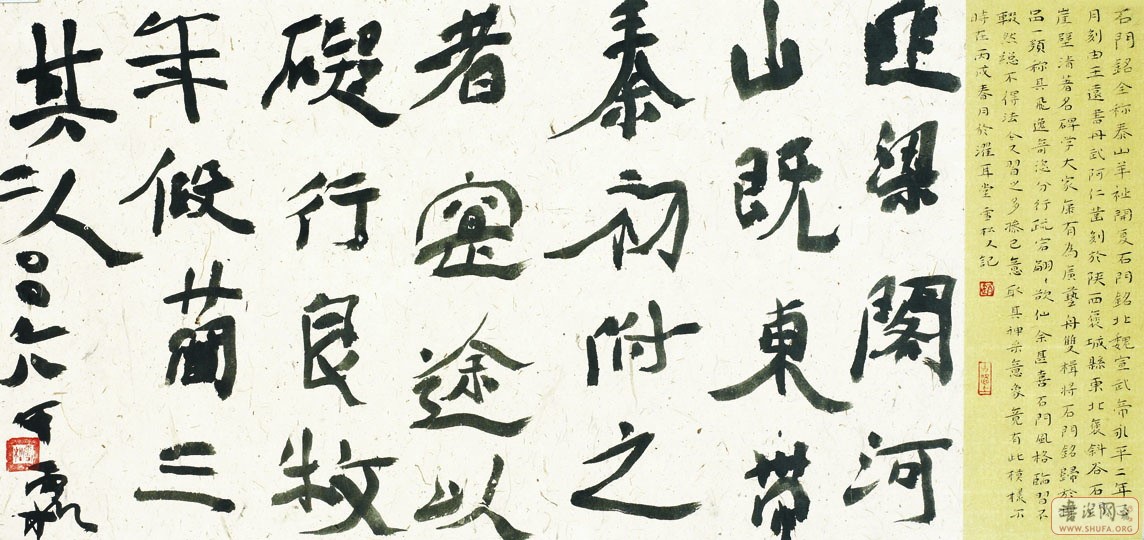 石門銘全称泰山羊祉開复石門銘北魏宣武帝永平二年
月刻由王遠書丹武阿仁鑿刻於陝西褒城縣東北褒斜谷石
崖壁清著名碑学大家康有為廣藝舟雙楫將石門銘歸於
品一類称其飛逸奇渾分行疏宕翩翩欲仙余甚喜石門風格臨習不
輟然總不得法今又習之多摻己意取其神采意象竟有此模樣
時在丙戌春月於濯耳堂雪松人記
匪梁閣河
山既東帶
秦初附之
者塞途以
礙行良牧
年假蘭三
其人
二〇〇六年
書法网
WWW.SHUFA.ORG